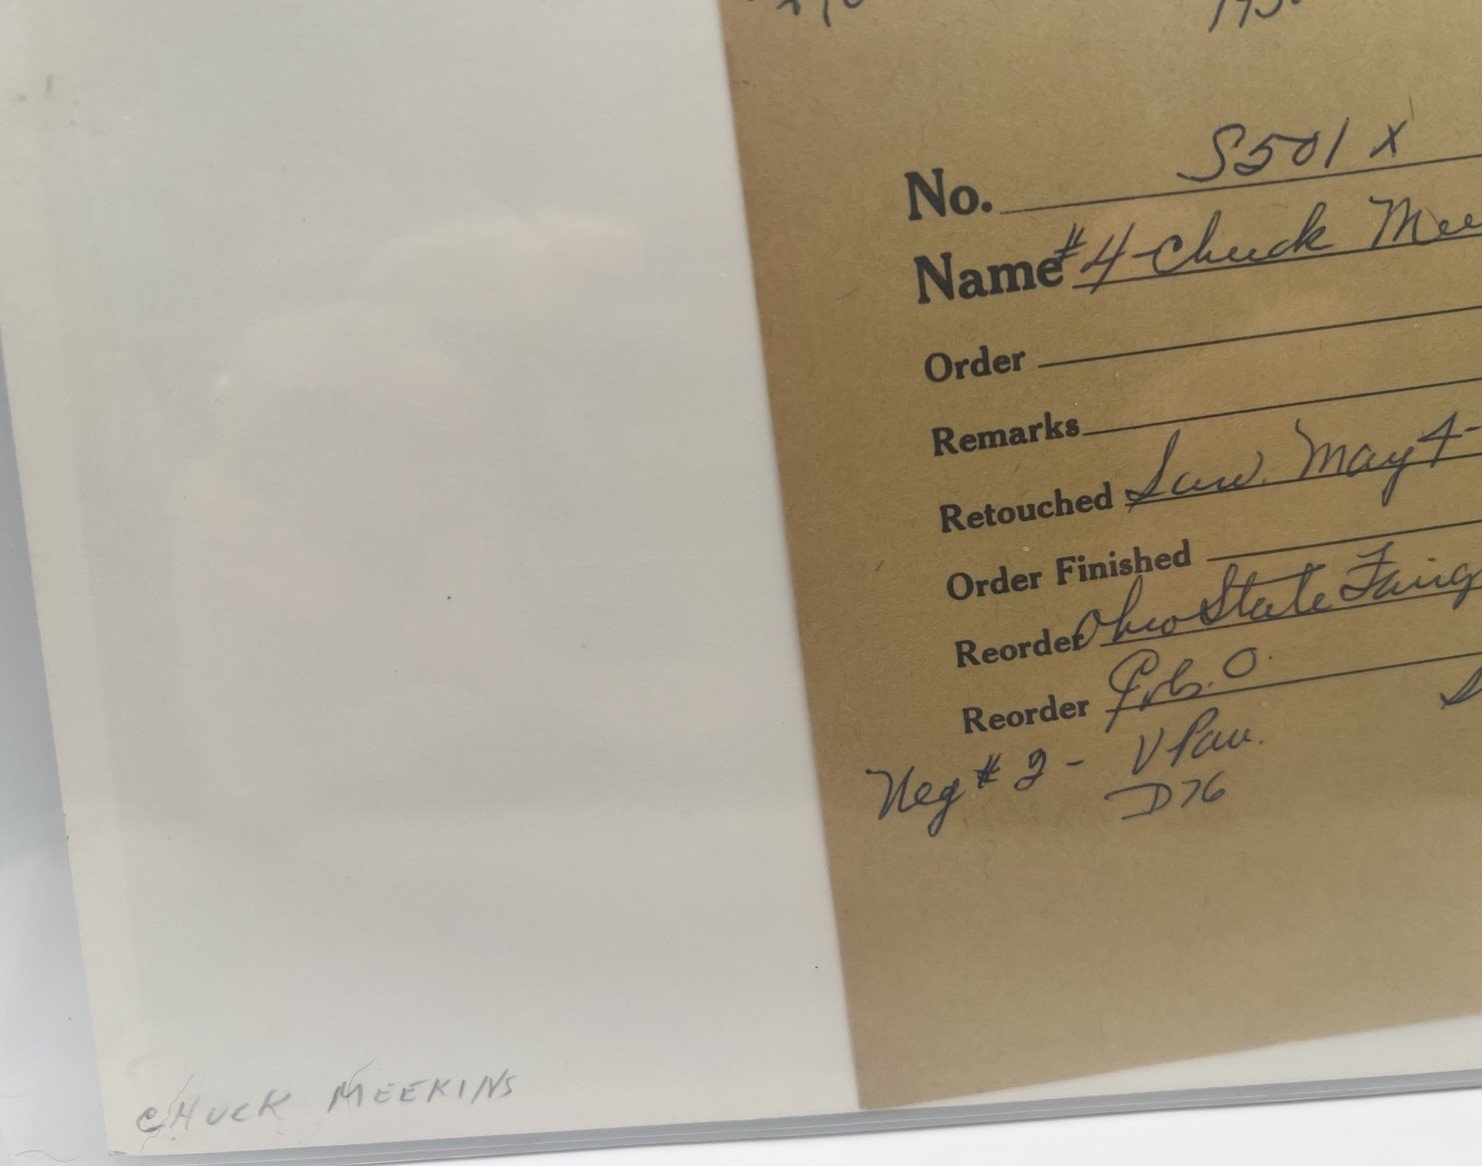 No. S501 X
Name #4 - Chuck Mee
Order
Remarks
Retouched Sun. May 4 -
Order Finished
Reorder Ohio State Fairg
Reorder Col. O.
Neg # 2 - V Pan.
D76
CHUCK MEEKINS